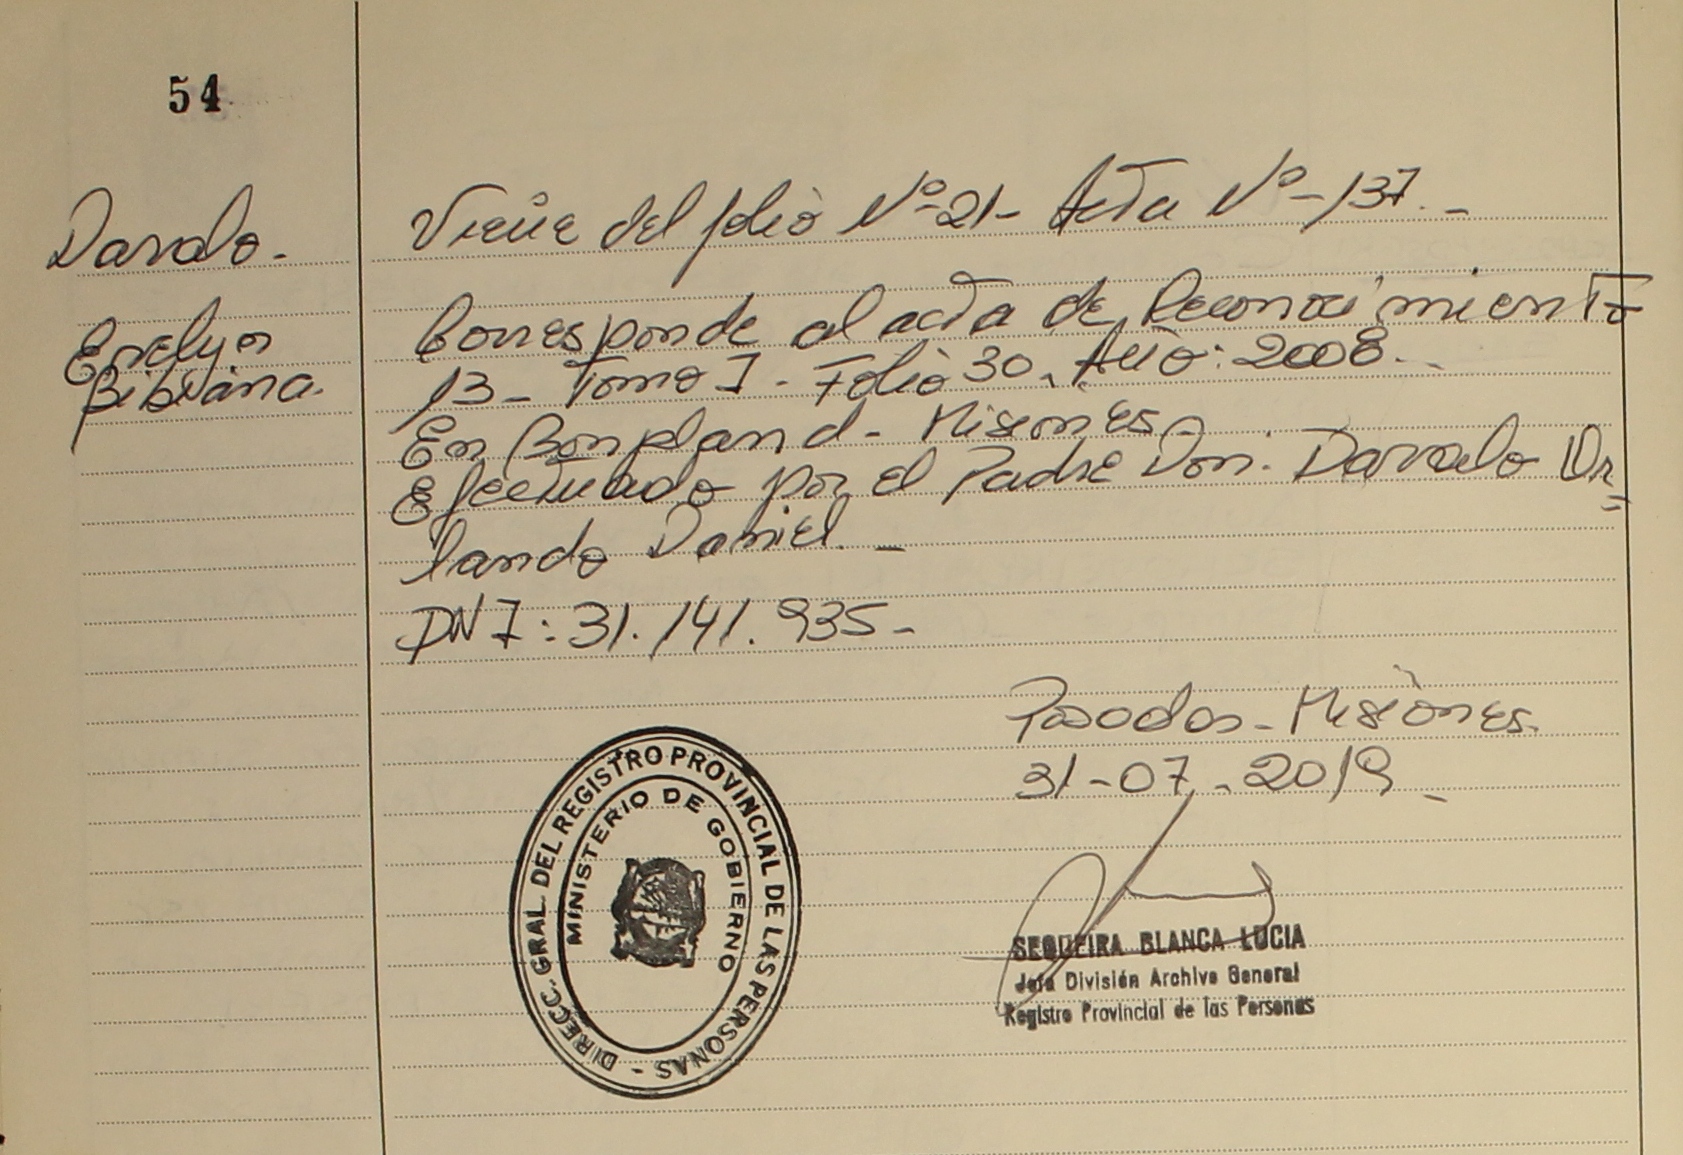 54
Davalo.-
Evelyn
Bibiana.
Viene del folio Nº 21- Acta Nº-137.-
Corresponde al acta de Reconocimiento
13- Tomo I- Folio 30. Año: 2008.-
En Bonpland- Misiones-
Efectuado por el Padre Don: Davalo Or=
lando Daniel.-
DNI: 31.141.935-
Posadas- Misiones.
31-07-2019.-
DIRECC. GRAL. DEL REGISTRO PROVINCIAL DE LAS PERSONAS -
MINISTERIO DE GOBIERNO
SEQUEIRA BLANCA LUCIA
Jefa División Archivo General
Registro Provincial de las Personas